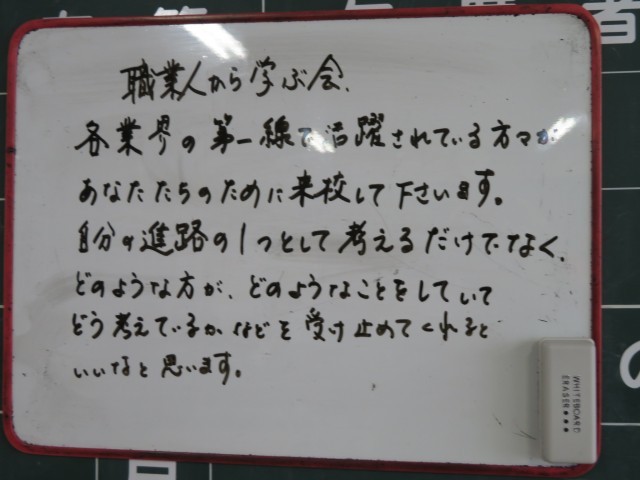 職業人から学ぶ会、
各業界の第一線で活躍されている方々が
あなたたちのために来校して下さいます。
自分の進路の1つとして考えるだけでなく、
どのような方が、どのようなことをしていて
どう考えているかなどを受け止めてくれると
いいなと思います。
WHITEBOARD
ERASER